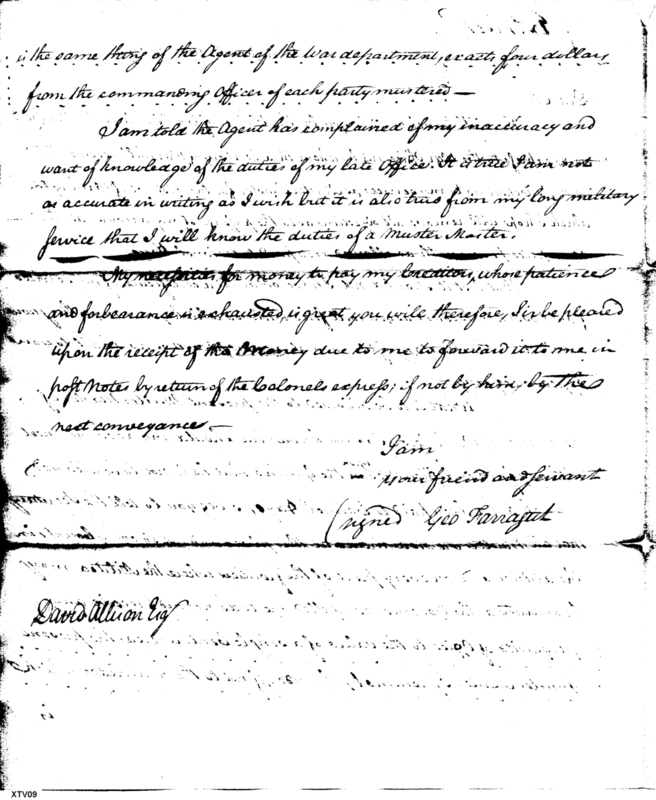 is the same thing of the Agent of the War department, exacts four dollars
from the commanding Officer of each party mustered —
I am told the Agent has complained of my inaccuracy and
want of knowledge of the duties of my late Office. It is true I am not
as accurate in writing as I wish but it is also true from my long military
service that I will know the duties of a Muster Master.
My necessities for money to pay my Creditors, whose patience
and forbearance is exhausted, is great you will therefore, Sir be pleased
upon the receipt of the Money due to me to forward it to me in
post Notes by return of the Colonels express; if not by him, by the
next conveyance —
I am
your friend and servant
(signed Geo Farragut
David Allison Esq
is
XTV09